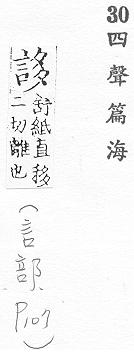 30四聲篇海
誃
舒紙直移
二切離也
(言部
P.107)